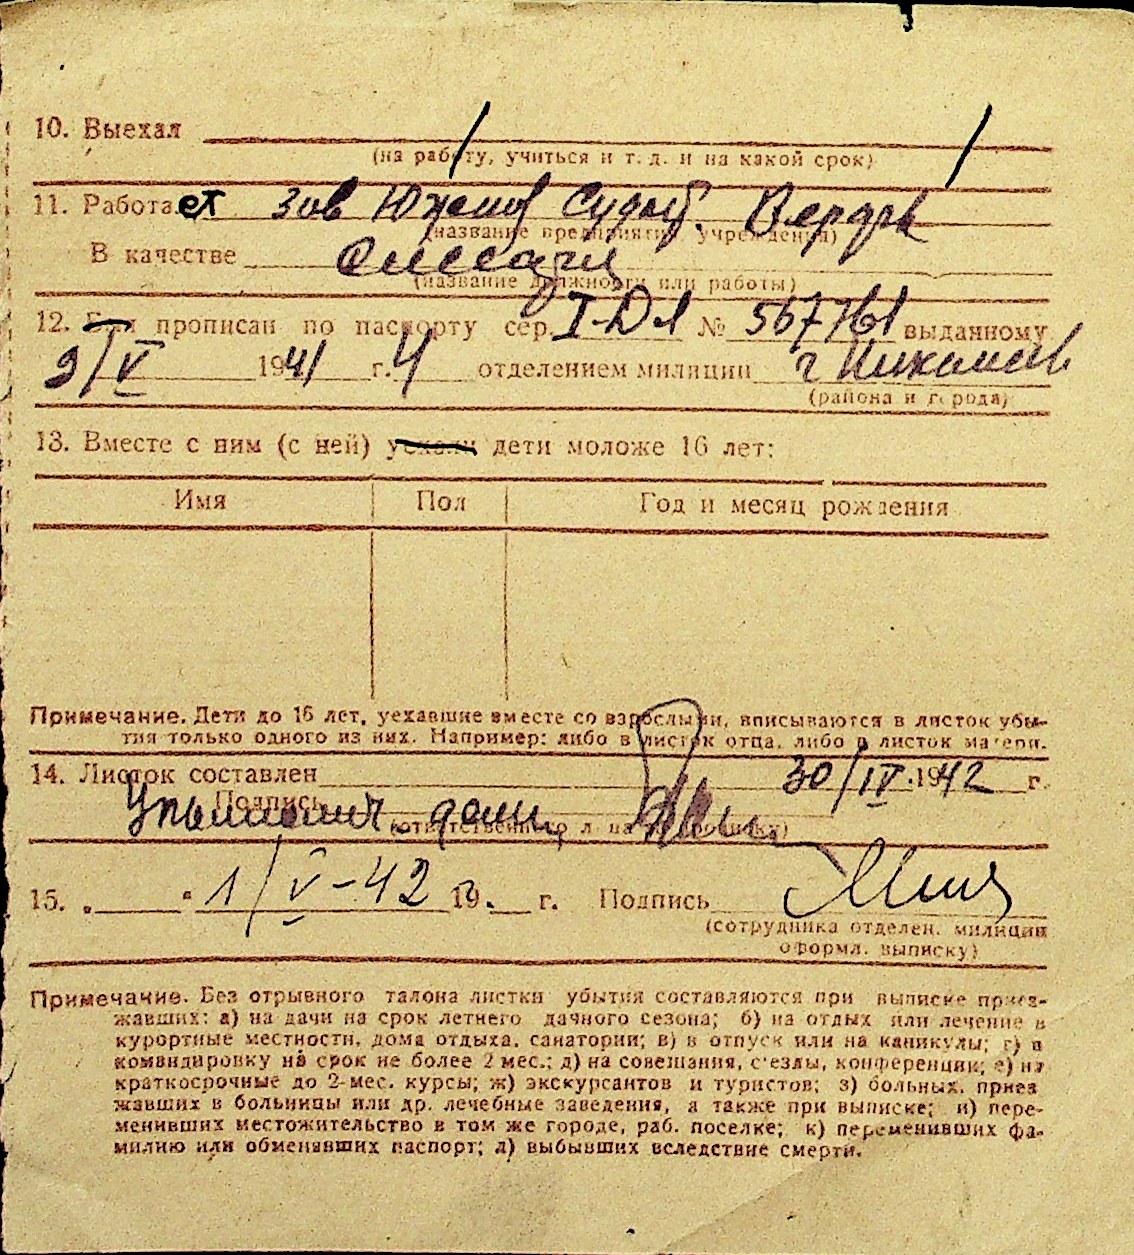 10. Выехал
(на работу, учиться и т. д. и на какой срок)
11. Работает Зов Южной Судоб.
(название предприятия, учреждения)
В качестве Слесаря
(название должности или работы)
12. Был прописан по паспорту сер. I-ДЛ № 567761 выданному
9/V 1941 г. 4 отделением милиции г Николаев
(района и города)
13. Вместе с ним (с ней) уехали дети моложе 16 лет:
Имя Пол Год и месяц рождения
Примечание. Дети до 16 лет, уехавшие вместе со взрослыми, вписываются в листок убы-
тия только одного из них. Например: либо в листок отца, либо в листок матери.
14. Листок составлен 30/IV 1942 г.
Подпись
(ответственного л на прописку)
15. „ “ 1/V-42 19 г. Подпись
(сотрудника отделен. милиции
оформл. выписку)
Примечание. Без отрывного талона листки убытия составляются при выписке приез-
жавших: а) на дачи на срок летнего дачного сезона; б) на отдых или лечение в
курортные местности, дома отдыха, санатории; в) в отпуск или на каникулы; г) в
командировку на срок не более 2 мес.; д) на совещания, с'езды, конференции; е) на
краткосрочные до 2-мес. курсы; ж) экскурсантов и туристов; з) больных, приез
жавших в больницы или др. лечебные заведения, а также при выписке; и) пере-
менивших местожительство в том же городе, раб. поселке; к) переменивших фа-
милию или обменявших паспорт; л) выбывших вследствие смерти.